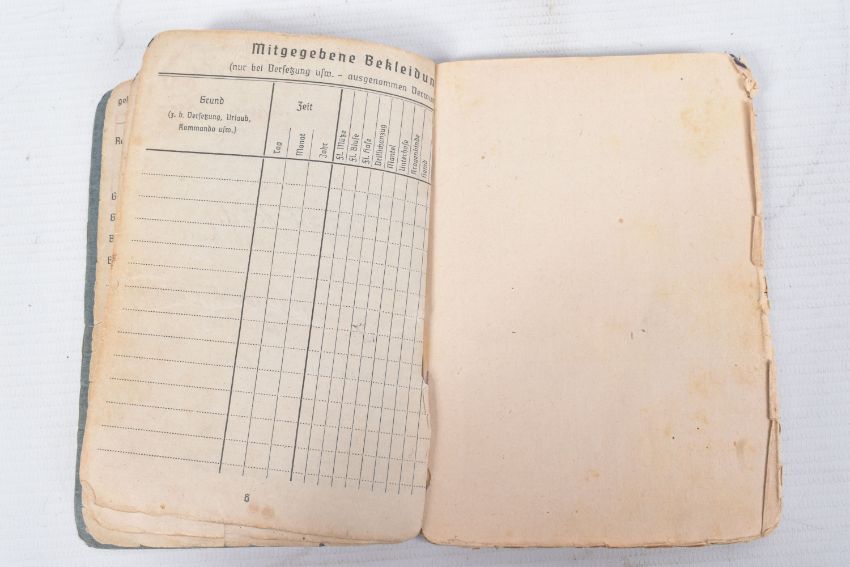 Mitgegebene Bekleidun
(nur bei Versetzung usw. - ausgenommen Verwun
Grund
(z. b. Versetzung, Urlaub,
Kommando usw.)
Zeit
Tag
Monat
Jahr
Fl. Mütze
Fl. Bluse
Fl. Hose
Drillichanzug
Mantel
Unterhose
Kragenbinde
Hemd
8